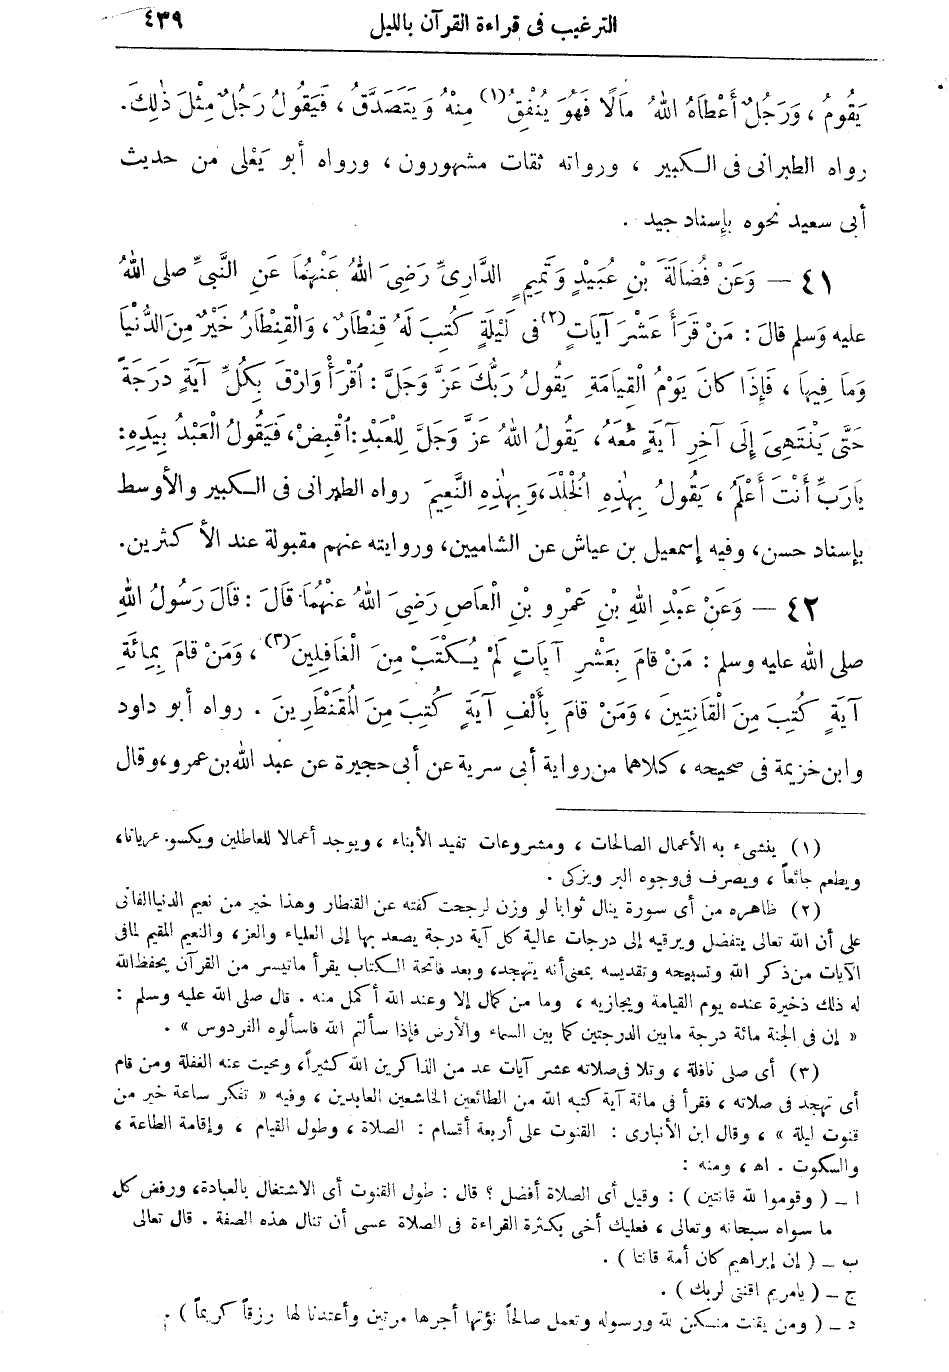 الترغيب فى قراءة القرآن بالليل ٤٣٩
يَقُومُ ، وَرَجُلٌ أَعْطَاهُ اللهُ مَالًا فَهُوَ يُنْفِقُ(١) مِنْهُ وَيَتَصَدَّقُ ، فَيَقُولُ رَجُلٌ مِثْلَ ذٰلِكَ.
رواه الطبرانى فى الكبير ، ورواته ثقات مشهورون ، ورواه أبو يَعْلى من حديث
أبى سعيد نحوه بإسناد جيد .
٤١ — وَعَنْ فُضَالَةَ بْنِ عُبَيْدٍ وَتَمِيمٍ الدَّارِىِّ رَضِىَ اللهُ عَنْهُمَا عَنِ النَّبِىِّ صلى اللهُ
عليه وَسلم قالَ : مَنْ قَرَأَ عَشْرَ آيَاتٍ(٢) فى لَيْلَةٍ كُتِبَ لَهُ قِنطَارٌ ، وَالْقِنْطَارُ خَيْرٌ مِنَ الدُّنْيَا
وَمَا فِيهَا ، فَإِذَا كَانَ يَوْمُ الْقِيَامَةِ يَقُولُ رَبُّكَ عَزَّ وَجَلَّ : اُقْرَأْ وَارْقَ بِكُلِّ آيَةٍ دَرَجَةً
حَتَّى يَنْتَهِىَ إِلَى آخِرِ آيَةٍ مَعَهُ ، يَقُولُ اللهُ عَزَّ وَجَلَّ لِلْعَبْدِ : اُقْبِضْ ، فَيَقُولُ الْعَبْدُ بِيَدِهِ :
يَارَبِّ أَنْتَ أَعْلَمُ ، يَقُولُ بِهٰذِهِ الْخُلْدَ ، وَبِهٰذِهِ النَّعِيمَ رواه الطبرانى فى الكبير والأوسط
بإسناد حسن ، وفيه إسمعيل بن عياش عن الشاميين ، وروايته عنهم مقبولة عند الأكثرين .
٤٢ — وَعَنْ عَبْدِ اللهِ بْنِ عَمْرِو بْنِ الْعَاصِ رَضِىَ اللهُ عَنْهُمَا قَالَ : قَالَ رَسُولُ اللهِ
صلى الله عليه وسلم : مَنْ قَامَ بِعَشْرِ آيَاتٍ لَمْ يُكْتَبْ مِنَ الْغَافِلِينَ(٣) ، وَمَنْ قَامَ بِمِائَةِ
آيَةٍ كُتِبَ مِنَ الْقَانِتِينَ ، وَمَنْ قَامَ بِأَلْفِ آيَةٍ كُتِبَ مِنَ الْمُقَنْطَرِينَ . رواه أبو داود
وابن خزيمة فى صحيحه ، كلاهما من رواية أبى سرية عن أبى حجيرة عن عبد الله بن عمرو ، وقال
(١) ينشىء به الأعمال الصالحات ، ومشروعات تفيد الأبناء ، ويوجد أعمالا للعاطلين ويكسو عريانا،
ويطعم جائعاً ، ويصرف فى وجوه البر ويزكى .
(٢) ظاهره من أى سورة ينال ثوابا لو وزن لرجحت كفته عن القنطار وهذا خير من نعيم الدنيا الفانى
على أن الله تعالى يتفضل ويرقيه إلى درجات عالية كل آية درجة يصعد بها إلى العلياء والعز، والنعيم المقيم لمافى
الآيات من ذكر الله وتسبيحه وتقديسه بمعنى أنه يتهجد، وبعد فاتحة الكتاب يقرأ ماتيسر من القرآن يحفظ الله
له ذلك ذخيرة عنده يوم القيامة ويجازيه ، وما من كمال إلا وعند الله أكمل منه . قال صلى الله عليه وسلم :
« إن فى الجنة مائة درجة مابين الدرجتين كما بين السماء والأرض فإذا سألتم الله فاسألوه الفردوس » .
(٣) أى صلى نافلة ، وتلا فى صلاته عشر آيات عد من الذاكرين الله كثيراً، ومحيت عنه الغفلة ومن قام
أى تهجد فى صلاته ، فقرأ فى مائة آية كتبه الله من الطائعين الخاشعين العابدين ، وفيه « تفكر ساعة خير من
قنوت ليلة » ، وقال ابن الأنبارى : القنوت على أربعة أقسام : الصلاة ، وطول القيام ، وإقامة الطاعة ،
والسكوت . اهـ ، ومنه :
ا ــ ( وقوموا لله قانتين ) : وقيل أى الصلاة أفضل ؟ قال : طول القنوت أى الاشتغال بالعبادة، ورفض كل
ما سواه سبحانه وتعالى ، فعليك أخى بكثرة القراءة فى الصلاة عسى أن تنال هذه الصفة . قال تعالى
ب ــ ( إن إبراهيم كان أمة قانتا ) .
ج ــ ( يامريم اقنتى لربك ) .
د ــ ( ومن يقنت منكن لله ورسوله وتعمل صالحاً نؤتها أجرها مرتين وأعتدنا لها رزقاً كريماً )